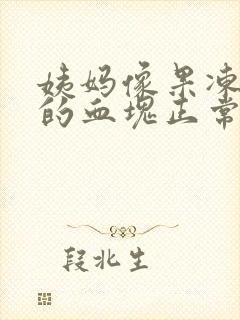 姨妈像果冻
的血塊正常
段北生